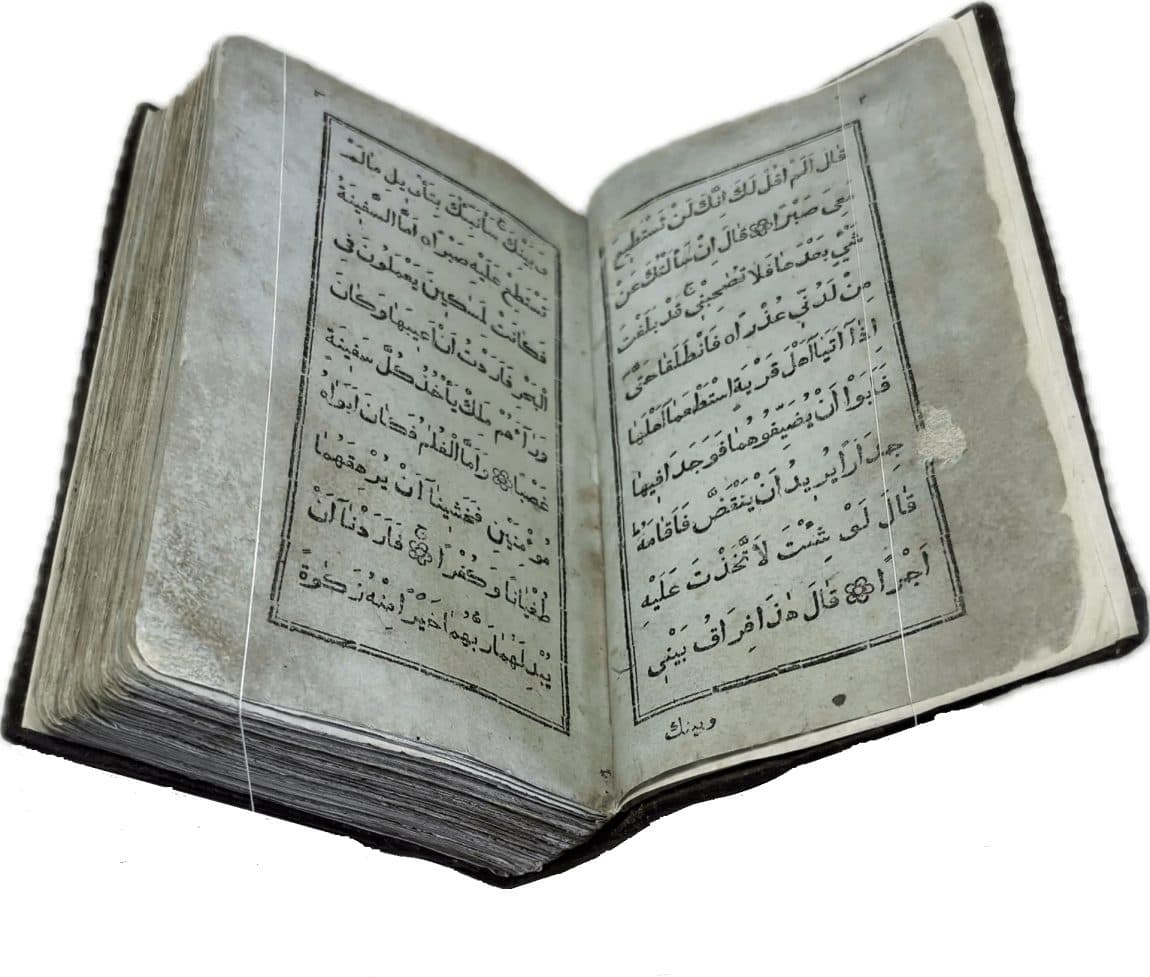 قَالَ اَلَمْ اَقُلْ لَكَ اِنَّكَ لَنْ تَسْتَطِيعَ
مَعِىَ صَبْرًا ۞ قَالَ اِنْ سَاَلْتُكَ عَنْ
شَىْءٍ بَعْدَهَا فَلَا تُصَٰحِبْنِى ۚ قَدْ بَلَغْتَ
مِنْ لَدُنِّى عُذْرًا ه فَانْطَلَقَا حَتَّى
اِذَآ اَتَيَآ اَهْلَ قَرْيَةٍ اسْتَطْعَمَآ اَهْلَهَا
فَاَبَوْا اَنْ يُضَيِّفُوهُمَا فَوَجَدَا فِيهَا
جِدَارًا يُرِيدُ اَنْ يَنْقَضَّ فَاَقَامَهُ ط
قَالَ لَوْ شِئْتَ لَاتَّخَذْتَ عَلَيْهِ
اَجْرًا ۞ قَالَ هٰذَا فِرَاقُ بَيْنِى
وبينك
وَبَيْنِكَ ۚ سَاُنَبِّئُكَ بِتَأْوِيلِ مَا لَمْ
تَسْتَطِعْ عَلَيْهِ صَبْرًا ه اَمَّا السَّفِينَةُ
فَكَانَتْ لِمَسٰكِينَ يَعْمَلُونَ فِى
الْبَحْرِ فَاَرَدْتُ اَنْ اَعِيبَهَا وَكَانَ
وَرَآءَهُمْ مَلِكٌ يَأْخُذُ كُلَّ سَفِينَةٍ
غَصْبًا ۞ وَاَمَّا الْغُلٰمُ فَكَانَ اَبَوَاهُ
مُؤْمِنَيْنِ فَخَشِينَآ اَنْ يُرْهِقَهُمَا
طُغْيَانًا وَكُفْرًا ۚ ۞ فَاَرَدْنَآ اَنْ
يُبْدِلَهُمَا رَبُّهُمَا خَيْرًا مِنْهُ زَكٰوةً